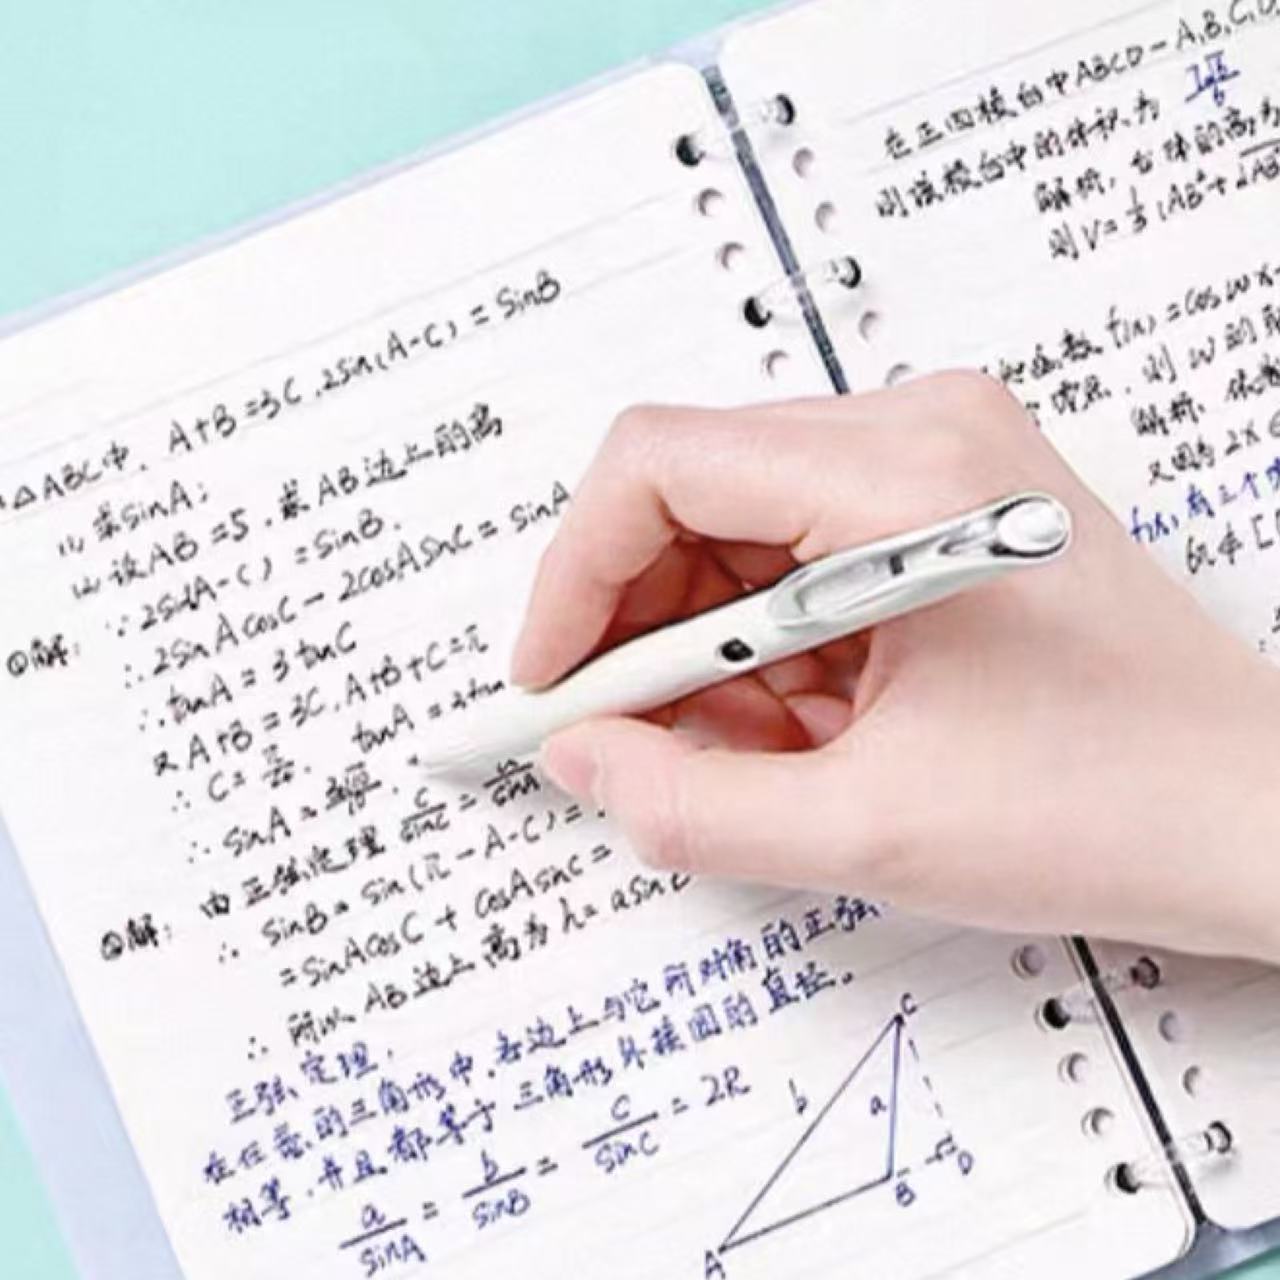 △ABC中，A+B=3C，2sin(A-C)=sinB
(1) 求sinA；
(2) 设AB=5，求AB边上的高
①解：∵2sin(A-C)=sinB.
∴2sinAcosC-2cosAsinC=sinA
∴tanA=3tanC
又A+B=3C，A+B+C=π
∴C=π/4. tanA=3tan
∴sinA=
②解：由正弦定理 c/sinC=a/sinA
∴sinB=sin(π-A-C)=
=sinAcosC+cosAsinC=
∴所以AB边上高为h=asinB
正弦定理.
在任意的三角形中，各边上与它所对角的正弦
相等，并且都等于三角形外接圆的直径。
a/sinA=b/sinB=c/sinC=2R
C
b
a
B
D
A
在正四棱台中ABCD-A₁B₁C₁D
则该棱台中的体积为 7√6/6
解析，台体的高为
则V=1/3(AB²+√AB
函数f(x)=cosωx-
零点，则ω的取
解析，依题
又因为2x∈
f(x)有三个零
在[